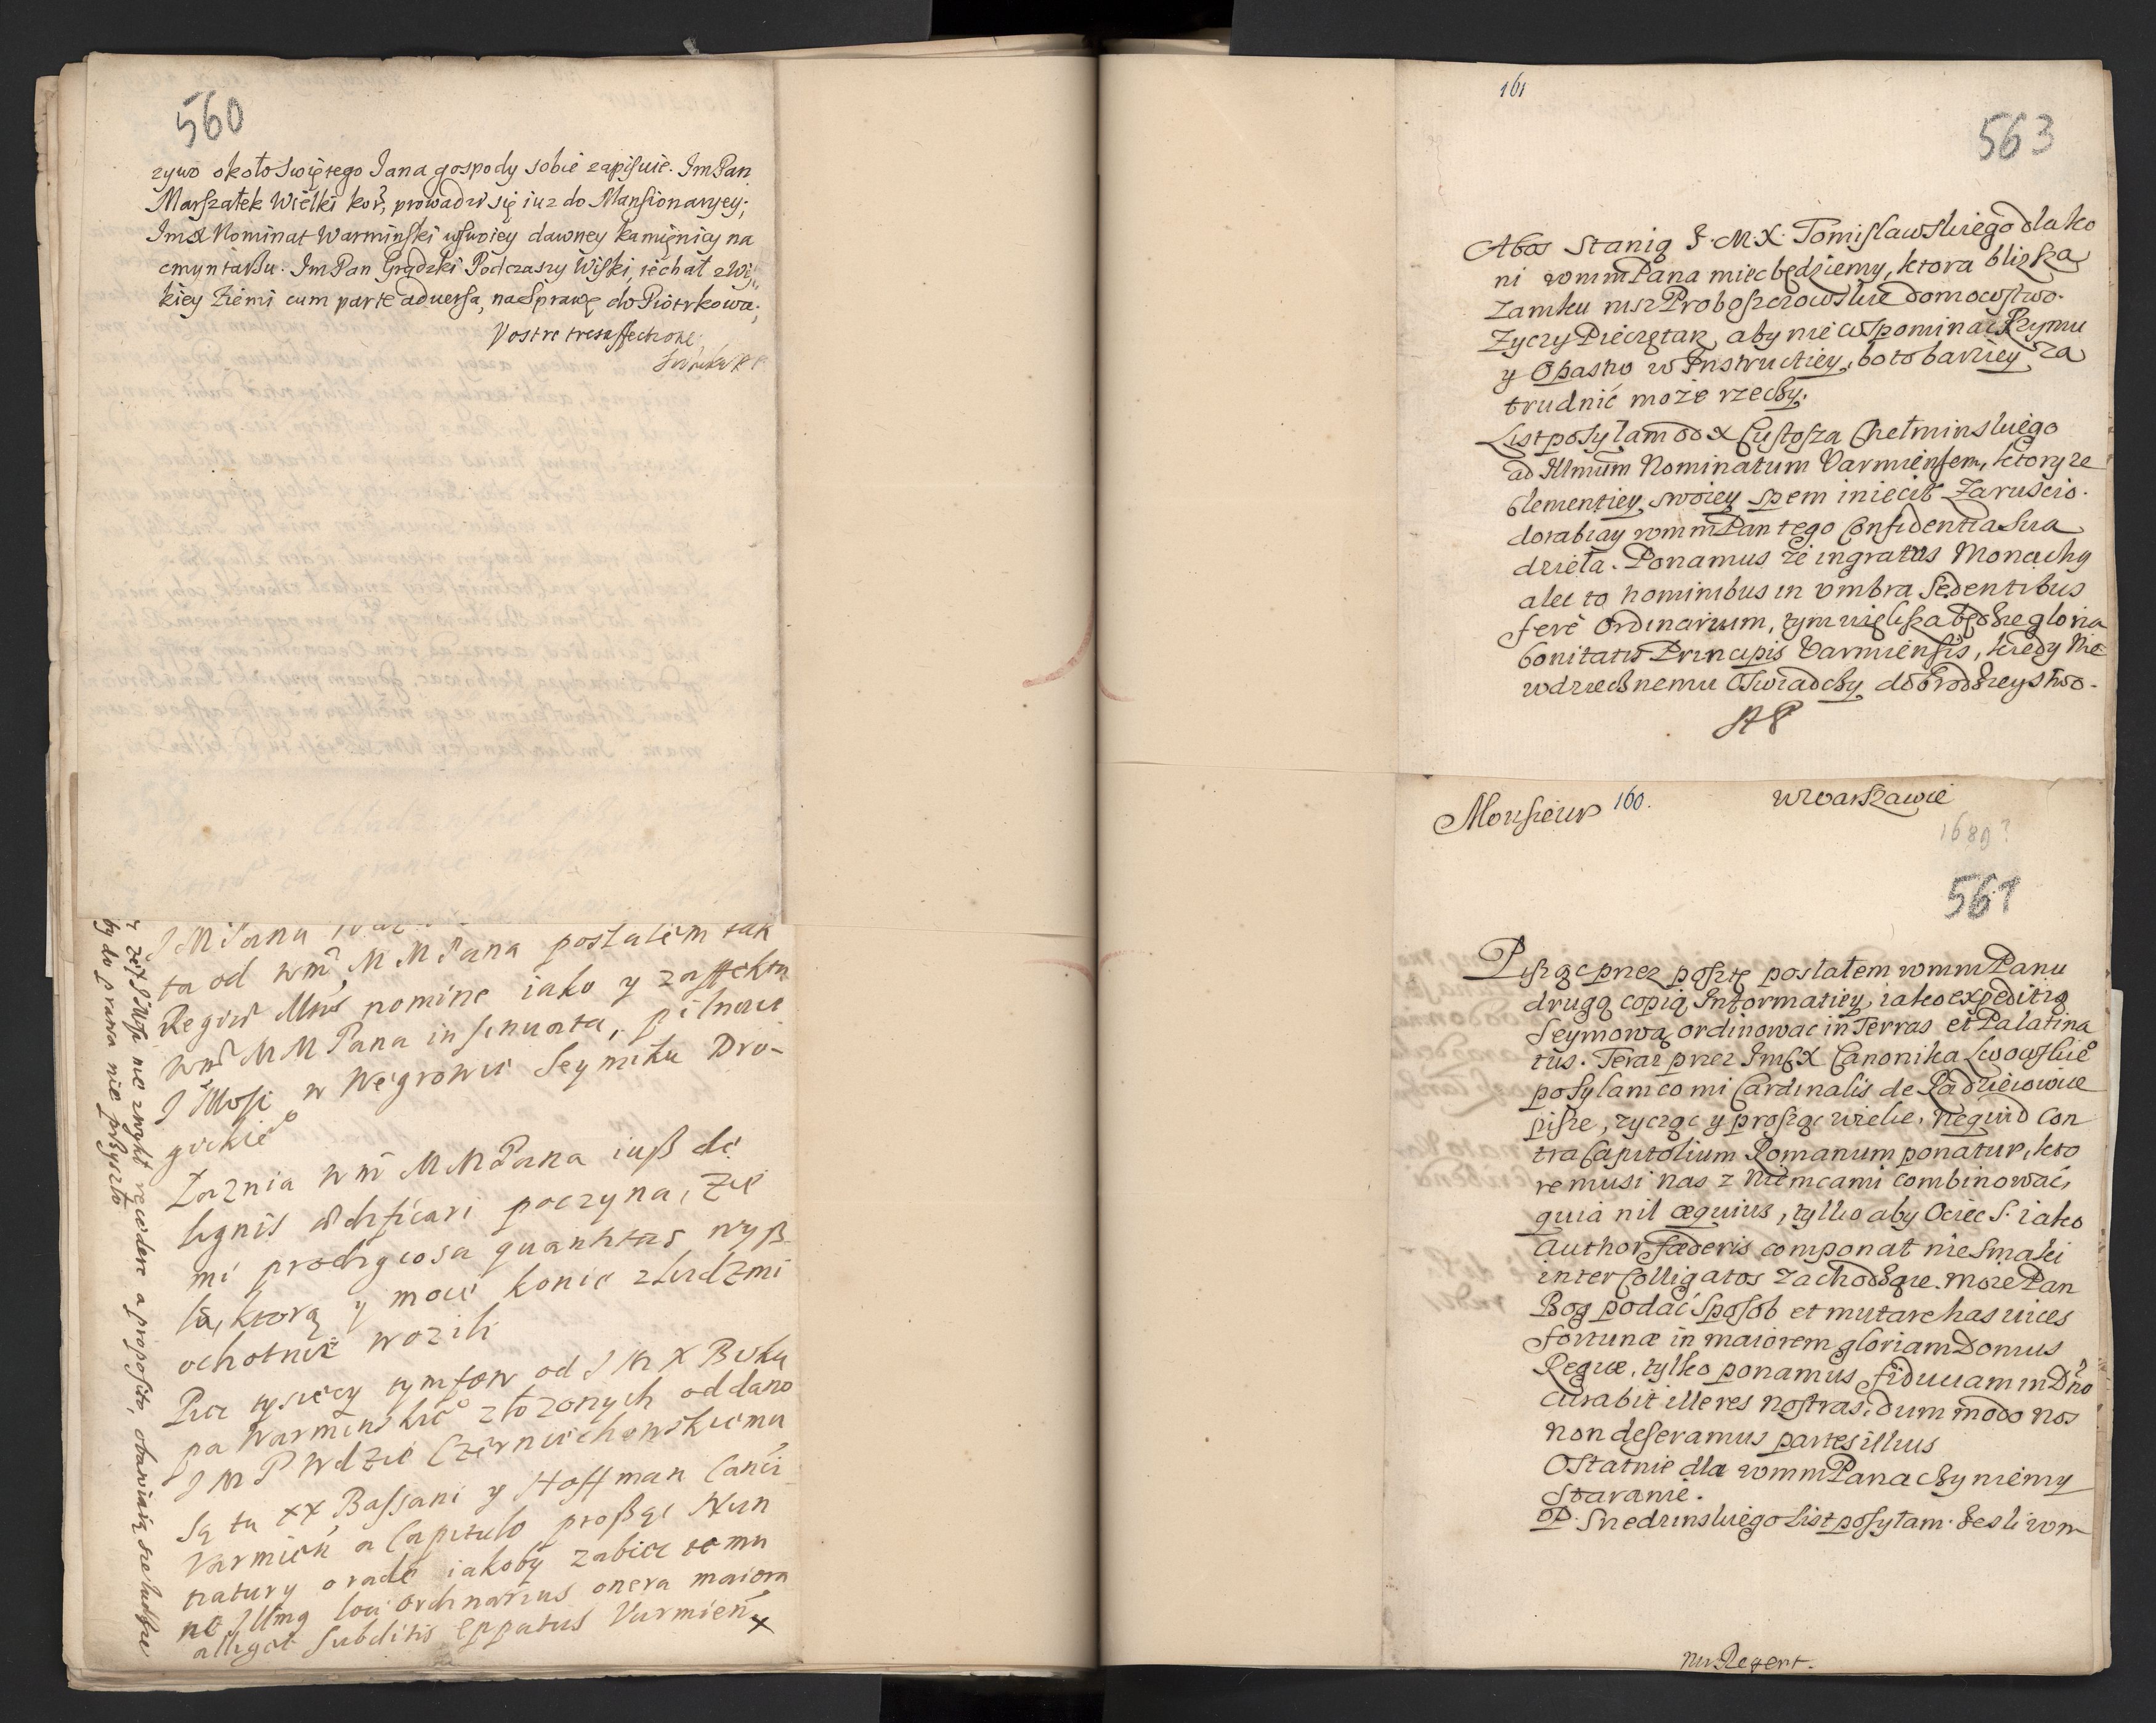 560
zywo około Swiętego Jana gospody sobie zapisuie. Jm Pan
Marszałek Wielki kor, prowadzi się iuz do Mansionaryey;
Jmx Nominat Warminski w swoiey dawney kamięnicy na
cmyntaßu. Jm Pan Grądzki Podczaszy Wiski, iechał z Wi,,
kiey Ziemi cum parte aduersa, na Sprawę do Piotrkowa.
Vostre tresaffectione
J M Pana
ta od wm M M Pana postałem tak
Regiw Mtis nomine iako y z affektu
wm M M Pana insinuata, pilnowi
J Mosci w Węgrowie Seymiku Dro-
gickie
Zaznia wm M M Pana iuß de
lignis ædificari poczyna, zie
mi prodigiosa quantitas wyß
ła, ktorą y moie konie z ludzmi
ochotnie wozili
Pięc tysięcy tymfow od J M X Bisku
pa Warminskie złozonych oddano
J M P Wdzie Czerniechowskiemu
Są tu XX Bassani y Hoffman Canci
Varmien a Capitulo proßąc Nun
tiatury o rade iakoby zabiec temu
ne Illmg loci ordinarius onera maiora
alliget subditis Eppatus Varmien x
y ze J Mosci nie zwykł recedere a proposito, obawiaią się ludzie
by do prawa nie przyszło
161
563
Abos Stanią J. M. X. Tomisławskiego dla ko
ni wmm Pana miec będziemy, ktora bliska
Zamku niz Proboszczowskie domowstwo.
Zyczy Pieczętarz, aby nie wspominac Krymu
y Opasno w Instructiey, bo to barziey za
trudnić może rzeczy.
List posyłam od X Custosza Chełminskiego
ad Illmum Nominatum Varmiensem, ktory ze
clementiey swoiey spem iniecit Zaruscio.
dorabiay wmm Pan tego Confidentia sua
dzieła. Ponamus że ingratus Monachy
ale to hominibus in umbra Sedentibus
ferè ordinarium, tym większa będzie gloria
bonitatis Principis Varmiensis, kiedy nie
wdzięcznemu Oswiadczy dobrodzieystwo.
Monsieur 160. w Warszawie
1689?
561
Pisząc przez posztę postałem wmm Panu
drugą copią Informatiey, iako expeditią
Seymową ordinowac in Terras et Palatina
tus. Teraz przez Jmsc X Canonika Lwowskie
posyłam co mi Cardinalis de Radzieiowice
pisze, zycząc y prosząc wielce, nequid con
tra Capitolium Romanum ponatur, kto
re musi nas z Niemcami combinowac,
quia nil æquius, tylko aby Ociec S. iako
Author fæderis componat niesmaki
inter Colligatos zachodzące. może Pan
Bog podac sposob et mutare has uices
fortunæ in maiorem gloriam Domus
Regiæ, tylko ponamus fiduciam in Dno
curabit ille res nostras, dum modo nos
non deseramus partes illius
Ostatnie dla wmm Pana czyniemy
staranie.
OP. Sredzinskiego List posyłam. Jesli wm